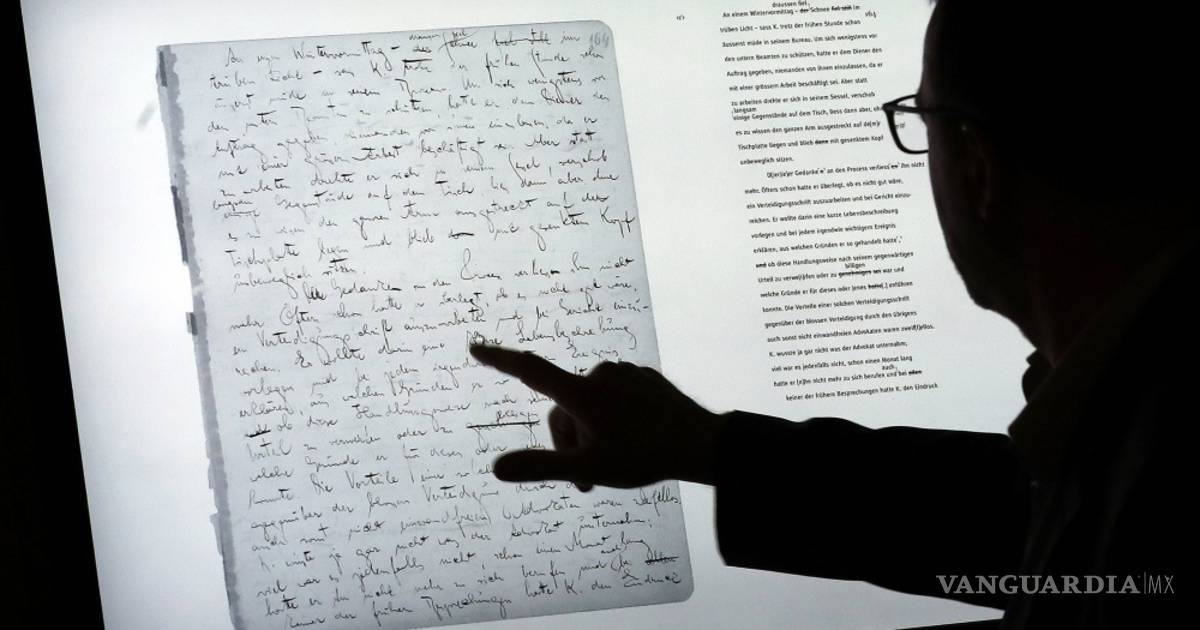 draussen fiel
An einem Wintervormittag – der Schnee fiel still im 164
trüben Licht – sass K. trotz der frühen Stunde schon
äusserst müde in seinem Bureau. Um sich wenigstens vor
den untern Beamten zu schützen, hatte er dem Diener den
Auftrag gegeben, niemanden von ihnen einzulassen, da er
mit einer grössern Arbeit beschäftigt sei. Aber statt
zu arbeiten drehte er sich in seinem Sessel, verschob
langsam
einige Gegenstände auf dem Tisch, liess dann aber, ohne
es zu wissen den ganzen Arm ausgestreckt auf der
Tischplatte liegen und blieb dann mit gesenktem Kopf
unbeweglich sitzen.
Der Gedanke an den Process verliess ihn nicht
mehr. Öfters schon hatte er überlegt, ob es nicht gut wäre,
ein Verteidigungsschrift auszuarbeiten und bei Gericht einzu-
reichen. Er wollte darin eine Lebensbeschreibung
vorlegen und bei jedem Ereignis
erklären, aus welchen Gründen er so
und ob diese Handlungsweise nach
Urteil zu verwerfen oder zu
welche Gründe er für dieses oder
konnte. Die Vorteile einer
gegenüber der blossen Verteidigung durch
auch sonst nicht einwandfreien Advokaten waren zweifellos.
K. wusste ja gar nicht was der Advokat unternahm;
viel war es jedenfalls nicht, schon einen Monat lang
hatte er ihn nicht mehr zu sich berufen und bei
keiner der frühen Besprechungen hatte K. den Eindruck
draussen fiel,
An einem Wintervormittag – der Schnee fiel still im 164
trüben Licht – sass K. trotz der frühen Stunde schon
äusserst müde in seinem Bureau. Um sich wenigstens vor
den untern Beamten zu schützen, hatte er dem Diener den
Auftrag gegeben, niemanden von ihnen einzulassen, da er
mit einer grössern Arbeit beschäftigt sei. Aber statt
zu arbeiten drehte er sich in seinem Sessel, verschob
langsam
einige Gegenstände auf dem Tisch, liess dann aber, ohne
es zu wissen den ganzen Arm ausgestreckt auf de[m]r
Tischplatte liegen und blieb dann mit gesenktem Kopf
unbeweglich sitzen.
D[er]ie]r Gedank[e]e' an den Process verliess ihn nicht
mehr. Öfters schon hatte er überlegt, ob es nicht gut wäre,
ein Verteidigungsschrift auszuarbeiten und bei Gericht einzu-
reichen. Er wollte darin eine kurze Lebensbeschreibung
vorlegen und bei jedem irgendwie wichtigern Ereignis
erklären, aus welchen Gründen er so gehandelt hatte,
und ob diese Handlungsweise nach seinem gegenwärtigen
billigen
Urteil zu verwe[i]rfen oder zu genehmigen sei war und
welche Gründe er für dieses oder jenes hatte[.] anführen
konnte. Die Vorteile einer solchen Verteidigungsschrift
gegenüber der blossen Verteidigung durch den übrigens
auch sonst nicht einwandfreien Advokaten waren zweif[l]ellos.
K. wusste ja gar nicht was der Advokat unternahm;
viel war es jedenfalls nicht, schon einen Monat lang
auch
hatte er [n]ihn nicht mehr zu sich berufen und bei allen
keiner der frühern Besprechungen hatte K. den Eindruck
VANGUARDIA|MX